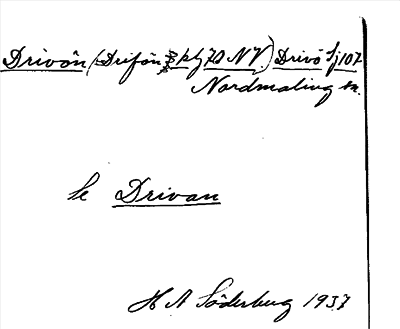 Drivön (Drifön kbl 70 NV.) Drivö Sj 107
Nordmaling sn.
Se Drivan
H A Söderberg 1937